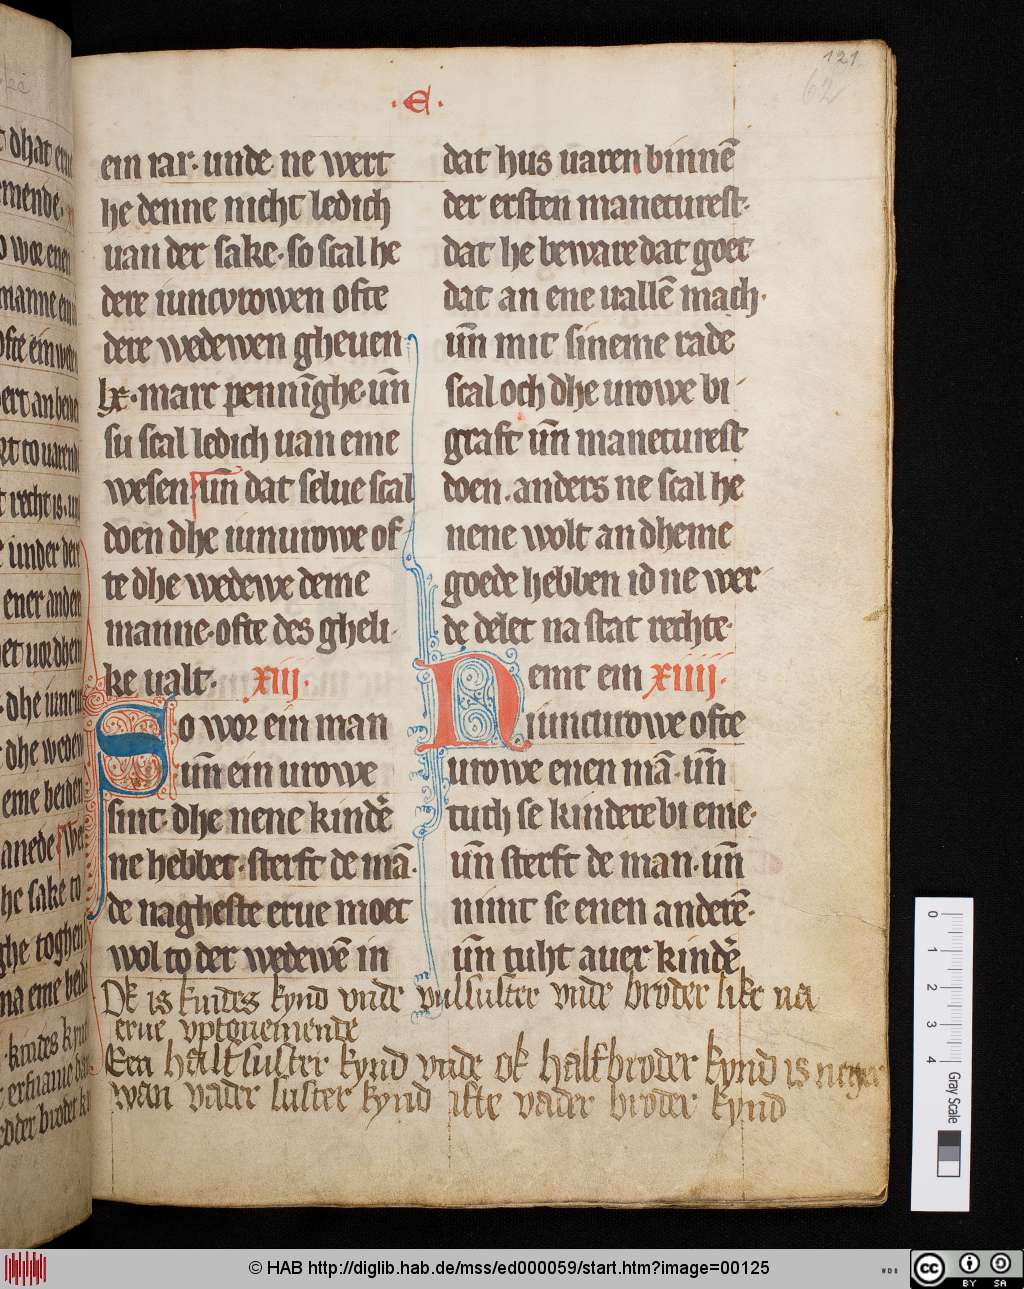 121
62
· E ·
ein iar· unde ne wert
he denne nicht ledich
uan der sake· so scal he
dere iuncvrowen ofte
dere wedewen gheuen
lx· marc penni̅ghe· uñ
su scal ledich uan eme
wesen uñ dat selue scal
doen dhe iunurowe of
te dhe wedewe deme
manne· ofte des gheli
ke ualt· xiij·
So wor ein man
uñ ein urowe
sint· dhe nene kindẽ
ne hebbet· sterft de mã·
de nagheste erue moet
wol to der wedewẽ in
dat hus uaren binnẽ
der ersten manecurest·
dat he beware dat goet
dat an ene uallẽ mach·
uñ mit sineme rade
scal och dhe urowe bi
graft uñ manecurest
doen· anders ne scal he
nene wolt an dheme
goede hebben id ne wer
de delet na stat rechte·
Nemt ein xiiij·
iuncurowe ofte
urowe enen mã· uñ
tuth se kindere bi eme·
uñ sterft de man· uñ
nimt se enen anderẽ·
uñ tuht auer kindẽ
Ok is kindes kynd vnde vulsuster vnde broder like na
erue vptonemende
Een halfsuster kynd vnde ok halfbroder kynd is neger
wan vader suster kynd ifte vader broder kynd
0 1 2 3 4 Gray Scale
© HAB http://diglib.hab.de/mss/ed000059/start.htm?image=00125
cc BY SA